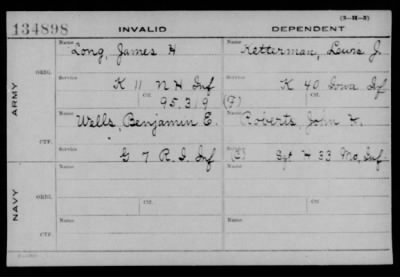 (3-H-3)
134898 INVALID DEPENDENT
Name Name
Long, James H Ketterman, J.
ARMY
ORIG. Service Service
K 11 N H Inf K 40 Iowa Inf
Ctf. Ctf.
95.319 (F)
Name Name
Wells, Benjamin E. Roberts, John
CTF. Service Service
G 7 R. I. Inf (S) Sgt H 33 Mo. Inf.
NAVY
Name Name
ORIG. Ctf. Ctf.
Name Name
CTF.